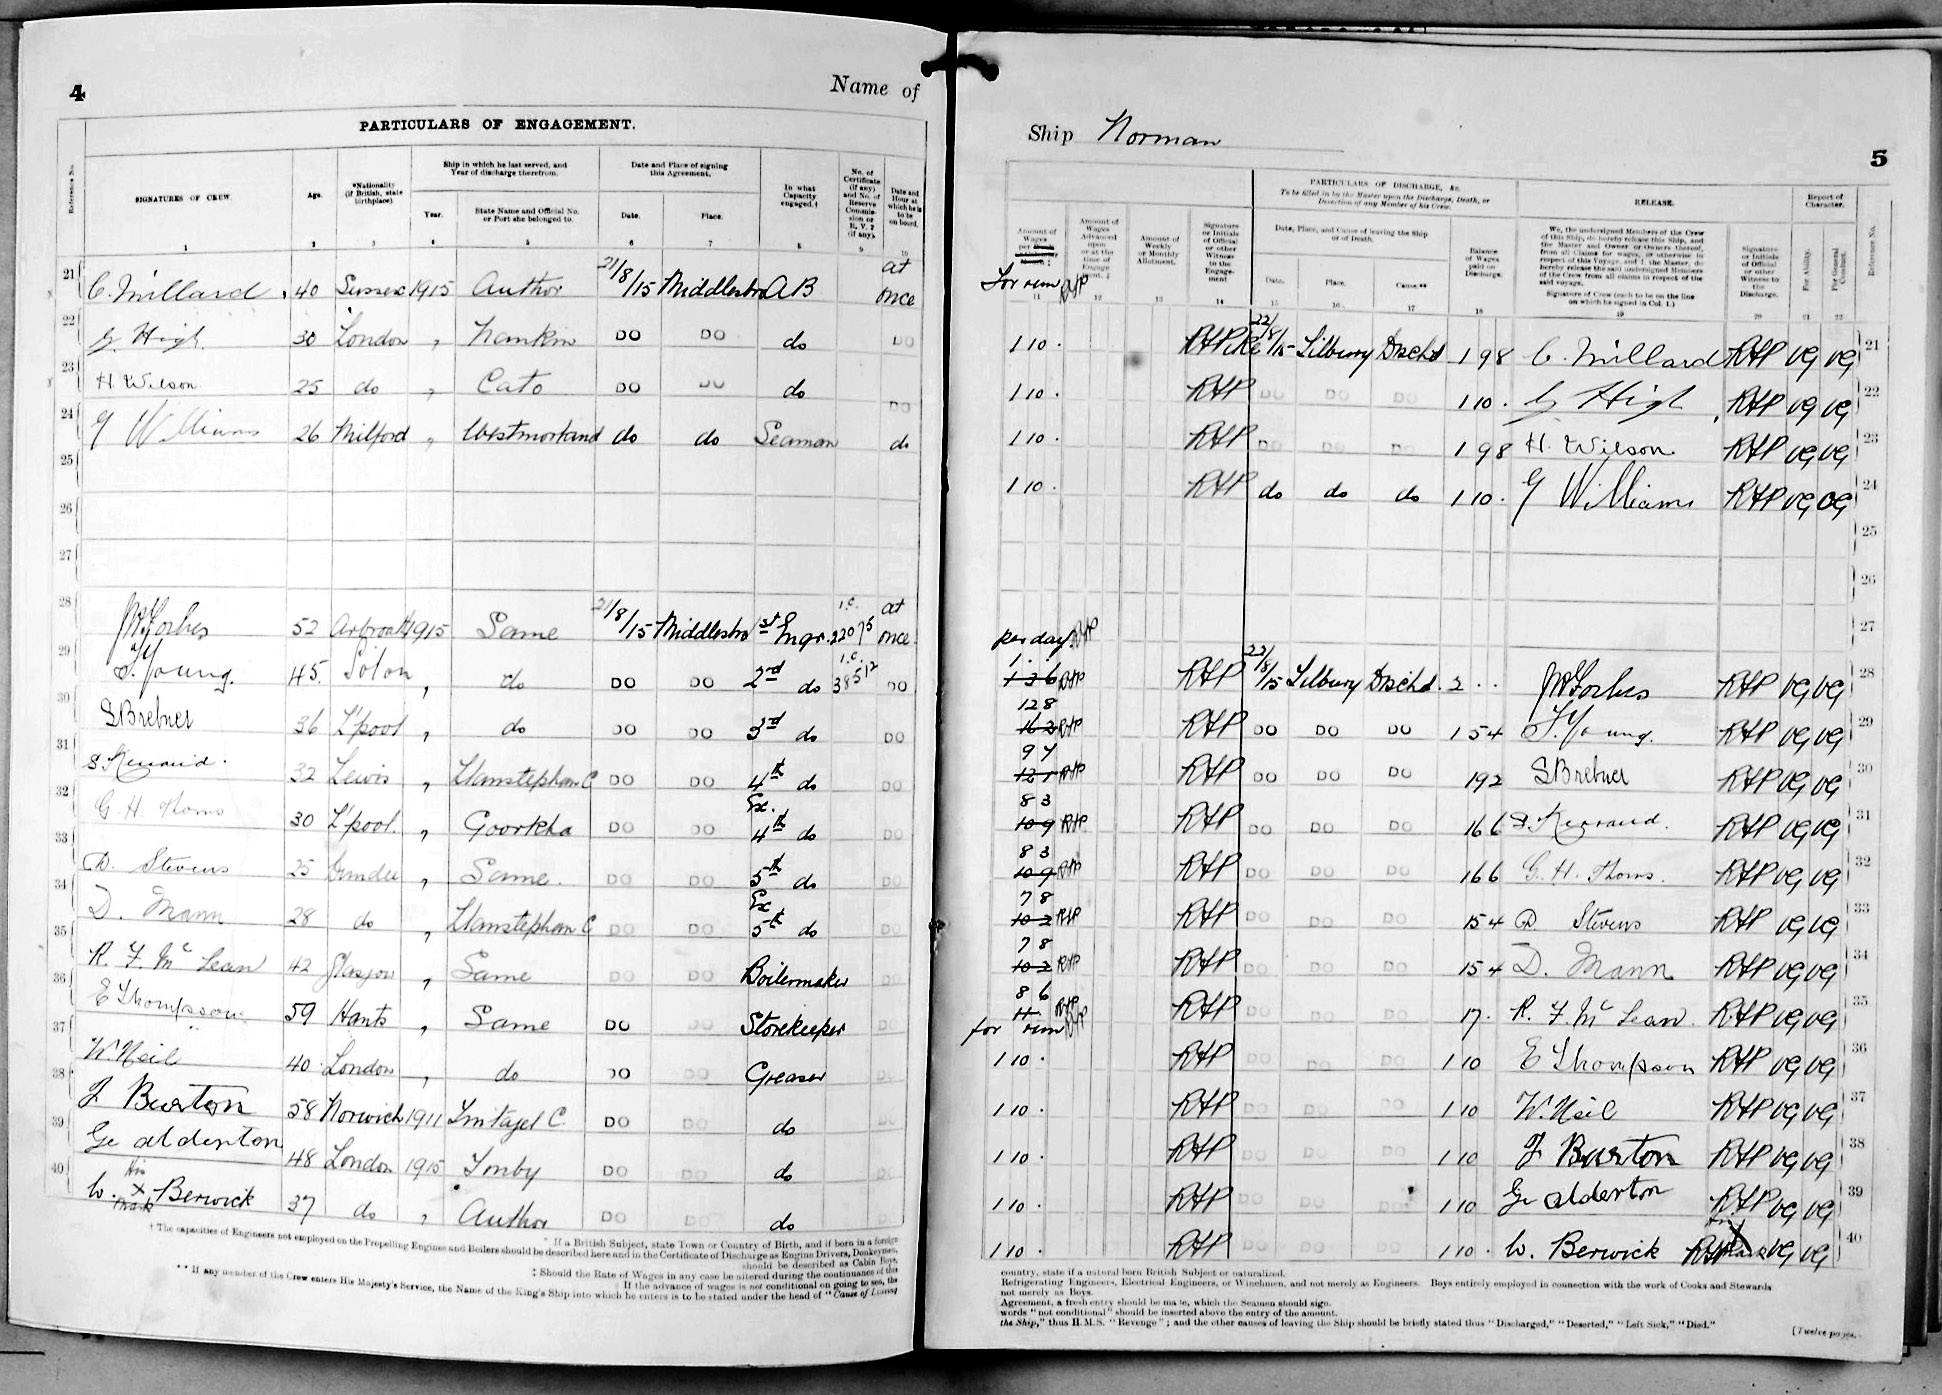 4
Name of
PARTICULARS OF ENGAGEMENT.
Reference No.
SIGNATURES OF CREW.
Age.
*Nationality (if British, state birthplace)
Ship in which he last served, and Year of discharge therefrom.
Year.
State Name and Official No. or Port she belonged to.
Date and Place of signing this Agreement.
Date.
Place.
In what Capacity engaged.†
No. of Certificate (if any) and No. of Reserve Commission or R.V.2 (if any).
Date and Hour at which he is to be on board.
1 2 3 4 5 6 7 8 9 10
21 C. Millard 40 Sussex 1915 Author 21/8/15 Middlesbro AB at once
22 G. High 30 London " Nankin DO DO do DO
23 H. Wilson 25 do " Cato DO DO do DO
24 G Williams 26 Milford " Westmorland do do Seaman do
25
26
27
28 Forbes 52 Arbroath 1915 Same 21/8/15 Middlesbro 1st Engr. I.C. 22075 at once
29 T. Young. 45. " do DO DO 2nd do I.C. 38512 DO
30 S Brebner 36 L'pool " do DO DO 3rd do DO
31 32 Lewis " Llanstephan C DO DO 4th do DO
32 G. H. Thoms 30 L'pool. " Goorkha DO DO Ex. 4th do DO
33 D. Stevens 25 Dundee " Same. DO DO 5th do DO
34 D. Mann 28 do " Llanstephan C DO DO Ex 5th do DO
35 R. F. McLean 42 Glasgow " Same DO DO Boilermaker DO
36 E Thompson 59 Hants " Same DO DO Storekeeper DO
37 W. Neil 40 London " do DO DO Greaser DO
38 J Burton 58 Norwich 1911 Tintagel C. DO DO do DO
39 Ge Alderton 48 London 1915 DO DO do DO
40 W. his X mark Berwick 37 do " Author DO DO do DO
* If a British Subject, state Town or Country of Birth, and if born in a foreign
† The capacities of Engineers not employed on the Propelling Engines and Boilers should be described here and in the Certificate of Discharge as Engine Drivers, Donkeymen,
should be described as Cabin Boys,
‡ Should the Rate of Wages in any case be altered during the continuance of this
If the advance of wages is not conditional on going to sea, the
** If any member of the Crew enters His Majesty's Service, the Name of the King's Ship into which he enters is to be stated under the head of "Cause of Leaving
Ship Norman
5
PARTICULARS OF DISCHARGE, &c.
To be filled in by the Master upon the Discharge, Death, or Desertion of any Member of his Crew.
RELEASE.
Report of Character.
Amount of Wages per
Amount of Wages Advanced upon or at the time of Engagement.
Amount of Weekly or Monthly Allotment.
Signature or Initials of Official or other Witness to the Engagement
Date, Place, and Cause of leaving the Ship or of Death.
Date.
Place.
Cause.**
Balance of Wages paid on Discharge.
We, the undersigned Members of the Crew of this Ship, do hereby release this Ship, and the Master and Owner or Owners thereof, from all Claims for wages, or otherwise in respect of this Voyage, and I, the Master, do hereby release the said undersigned Members of the Crew from all claims in respect of the said voyage.
Signature of Crew (each to be on the line on which he signed in Col. 1.)
Signature or Initials of Official or other Witness to the Discharge.
For Ability.
For General Conduct.
Reference No.
For run
11 12 13 14 15 16 17 18 19 20 21 22
1 10 . 22/8/15 Tilbury Dschd 1 9 8 C. Millard VG VG 21
1 10 . DO DO DO 1 10 . G High VG VG 22
1 10 . DO DO DO 1 9 8 H. Wilson VG VG 23
1 10 . do do do 1 10 . G Williams VG VG 24
25
26
27
per day
1 . . 1 3 6 22/8/15 Tilbury Dschd. 2 . . Forbes VG VG 28
12 8 DO DO DO 1 5 4 T. Young. VG VG 29
9 7 DO DO DO 19 2 S Brebner VG VG 30
8 3 10 9 DO DO DO 16 6 VG VG 31
8 3 10 9 DO DO DO 16 6 G. H. Thoms. VG VG 32
7 8 10 2 DO DO DO 15 4 D Stevens VG VG 33
7 8 10 2 DO DO DO 15 4 D. Mann VG VG 34
8 6 DO DO DO 17 . R. F. McLean. VG VG 35
for run
1 10 . DO DO DO 1 10 E Thompson VG VG 36
1 10 . DO DO DO 1 10 W. Neil VG VG 37
1 10 . DO DO DO 1 10 J Burton VG VG 38
1 10 . DO DO DO 1 10 Ge Alderton VG VG 39
1 10 . DO DO DO 1 10 . W. Berwick his X mark VG VG 40
country, state if a natural born British Subject or naturalized.
Refrigerating Engineers, Electrical Engineers, or Winchmen, and not merely as Engineers. Boys entirely employed in connection with the work of Cooks and Stewards
not merely as Boys.
Agreement, a fresh entry should be made, which the Seamen should sign.
words "not conditional" should be inserted above the entry of the amount.
the Ship," thus H.M.S. "Revenge"; and the other causes of leaving the Ship should be briefly stated thus "Discharged," "Deserted," "Left Sick," "Died."
[Twelve pages.